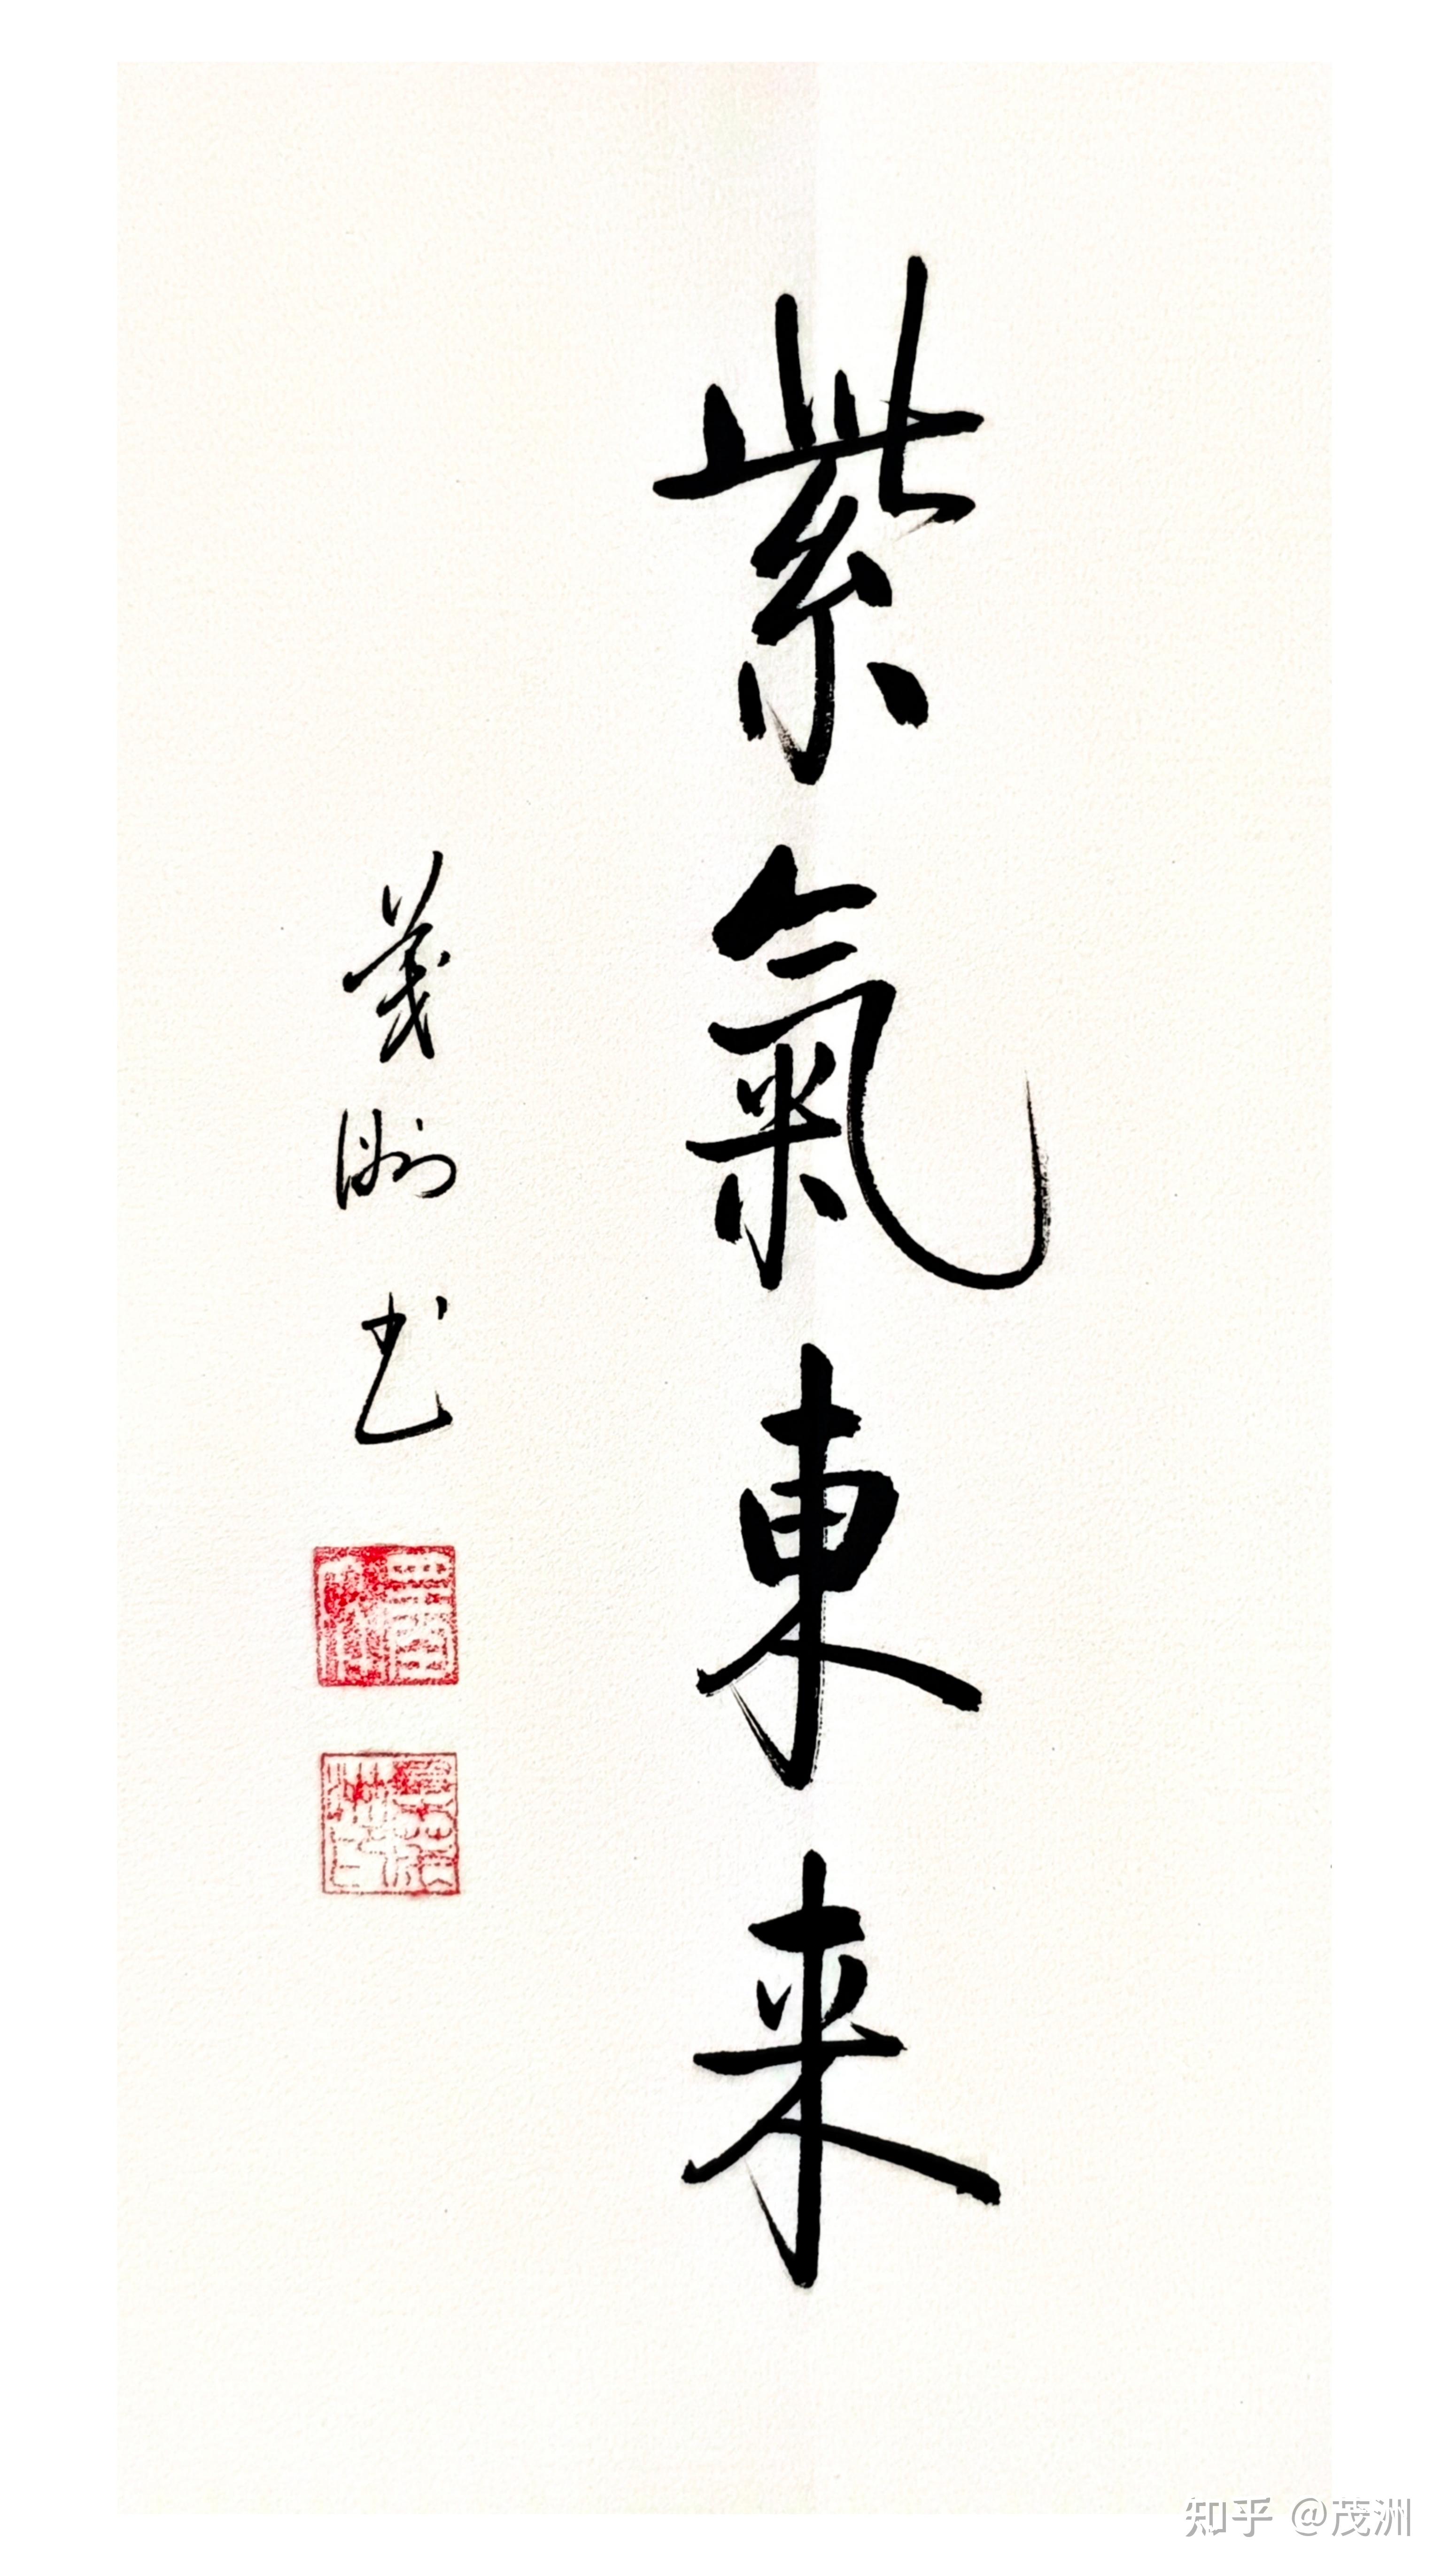 紫氣東来
茂洲书
知乎 @茂洲